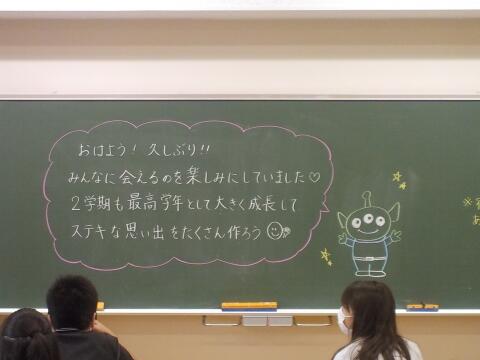 おはよう！久しぶり!!
みんなに会えるのを楽しみにしていました♡
2学期も最高学年として大きく成長して
ステキな思い出をたくさん作ろう